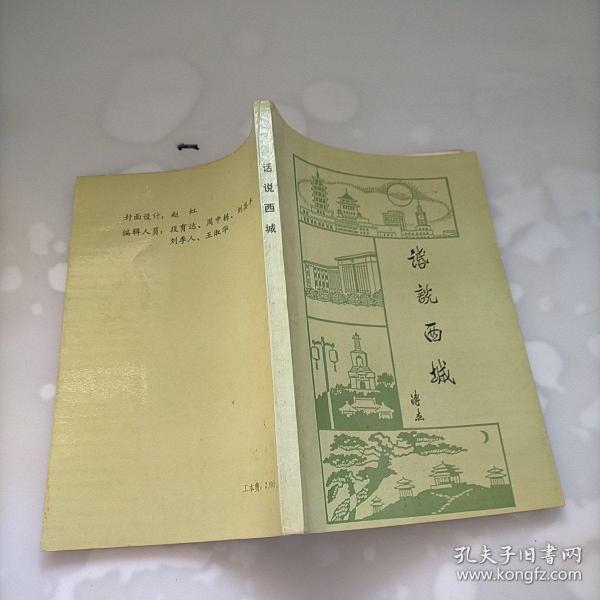 封面设计：赵虹
编辑人员：段育达、周中栋、
刘季人、王淑华
工本费：2.80
话说西城
话说西城
溥杰
孔夫子旧书网
www.kongfz.com